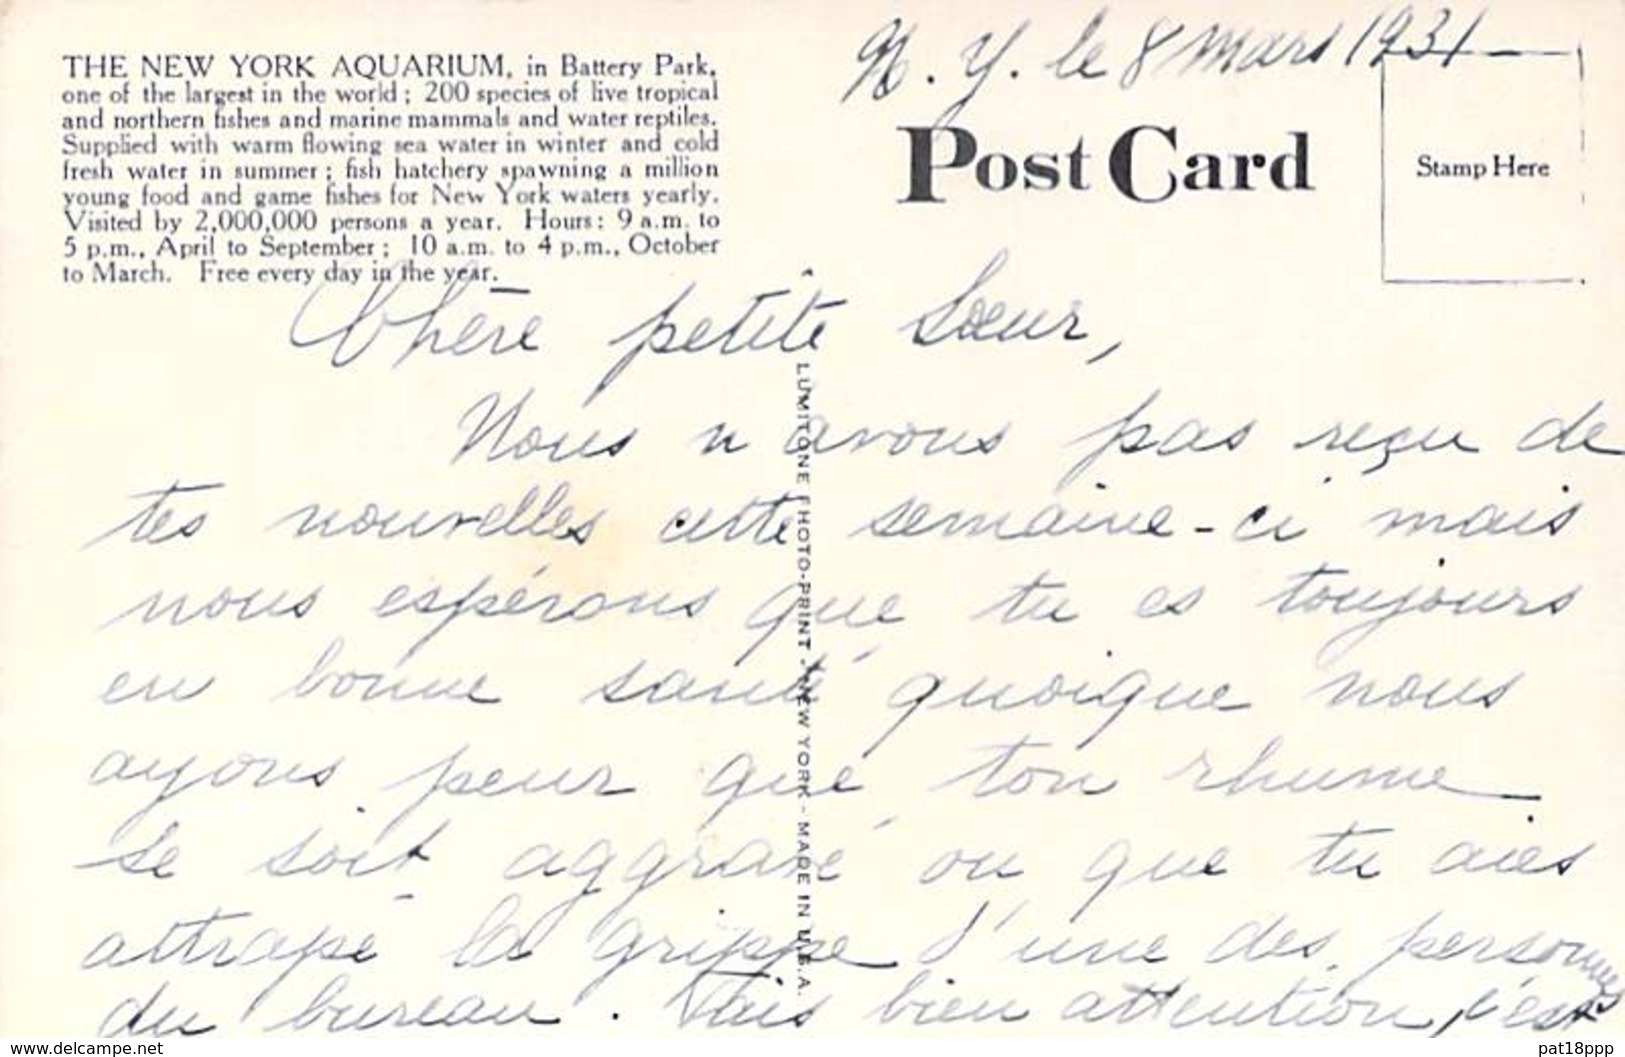 N. Y. le 8 Mars 1931
THE NEW YORK AQUARIUM, in Battery Park,
one of the largest in the world; 200 species of live tropical
and northern fishes and marine mammals and water reptiles.
Supplied with warm flowing sea water in winter and cold
fresh water in summer; fish hatchery spawning a million
young food and game fishes for New York waters yearly.
Visited by 2,000,000 persons a year. Hours: 9 a.m. to
5 p.m., April to September; 10 a.m. to 4 p.m., October
to March. Free every day in the year.
Post Card
Stamp Here
Chère petite Sœur,
Nous n'avons pas reçu de
tes nouvelles cette semaine-ci mais
nous espérons que tu es toujours
en bonne santé quoique nous
ayons peur que ton rhume
se soit aggravé ou que tu aies
attrapé la grippe d'une des personnes
du bureau. Fais bien attention, c'est
LUMITONE PHOTO-PRINT - NEW YORK - MADE IN U.S.A.
www.delcampe.net
pat18ppp